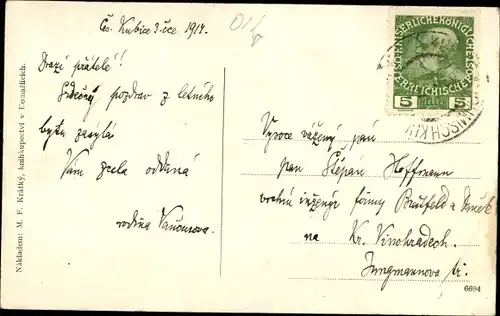 Čes. Kubice 3. čce 1914.
Drazí přátelé!
Srdečný pozdrav z letního
bytu zasýlá
Vám zcela oddaná
rodina Vančurova.
Nákladem: M. F. Krátký, knihkupectví v Domažlicích.
KAISERLICHE KÖNIGLICHE
ÖSTERREICHISCHE
5 HELLER 5
Vysoce vážený pan
pan Štěpán Hoffmann
vrchní inženýr firmy
na Kr. Vinohradech.
Jungmannova tř.
6694